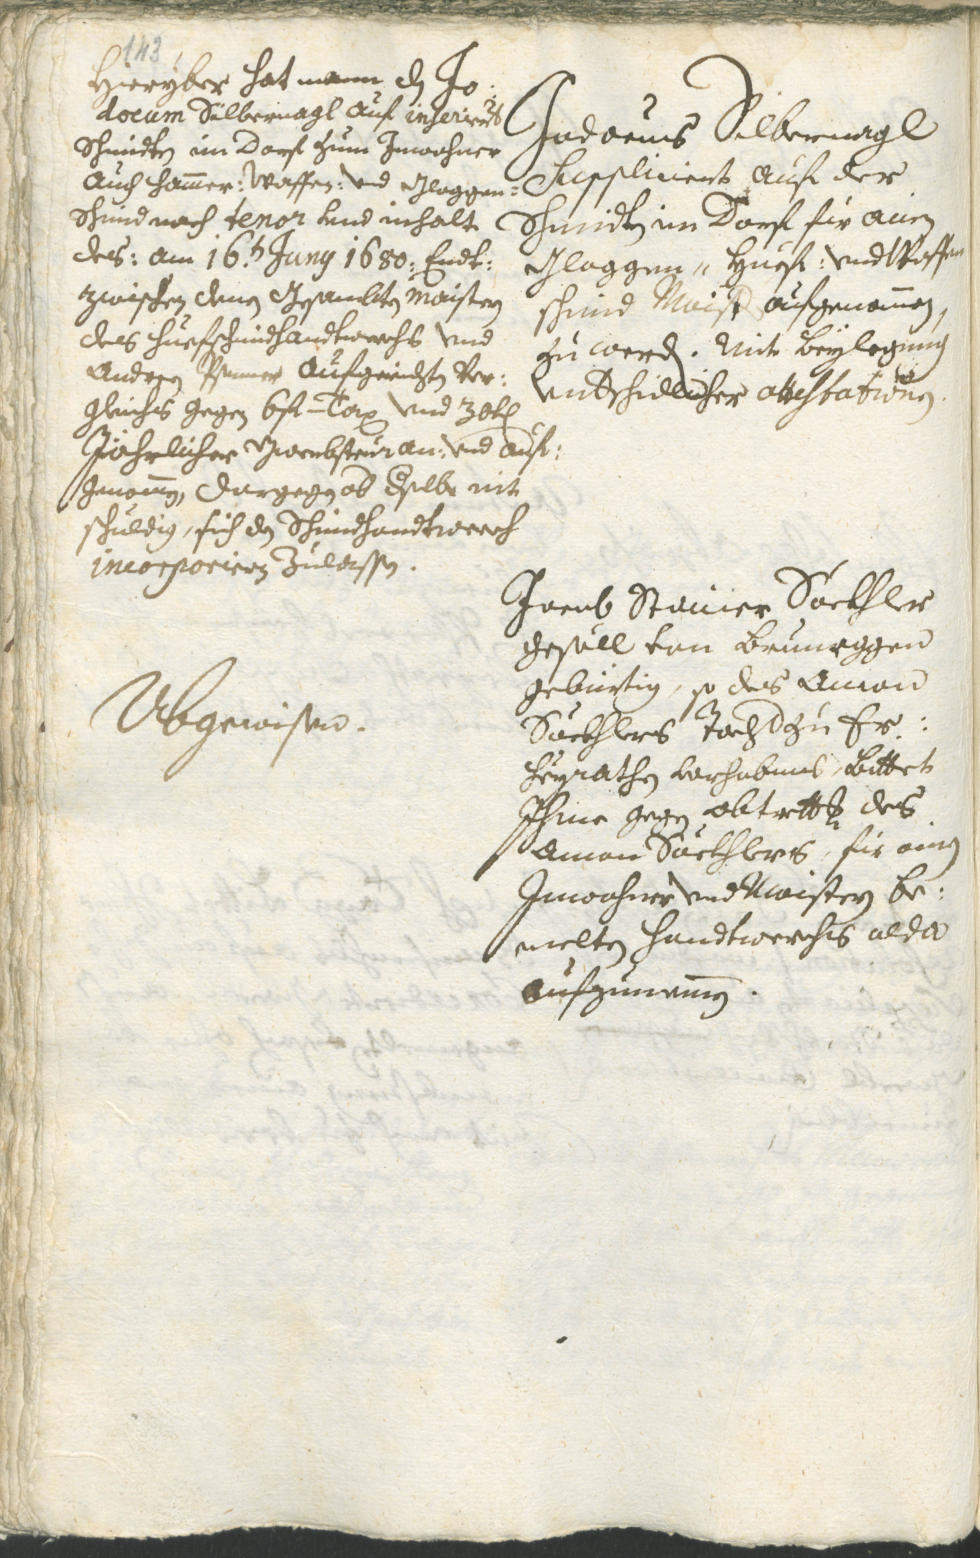 143
Hieryber hat mann dz Jo:
docum Silbernagl auf inserierts
Schmidten im Dorf zum Inwohner
auch hamer: Waffen: und Gloggen=
Schmid nach tenor und inhalt
des: am 16.t Juny 1680: Endt:
zwischen denen Gesambten Maistern
des huefschmidhandtwerchs und
Andreen aufgerichten Ver:
gleichs gegen 6 fl Tax und
Jährlicher Gwerbsteur an: und auf:
genomen, dargegen ob derselbe nit
schuldig, sich dem Schmidhandtwerch
incorporiern zulassen.
Abgewisen.
Jodocus Silbernagl
Supplicient auf der
Schmidten im Dorf für ainen
Gloggen= Huef: und Waffen
schmid Maister aufgenomen,
zu werden. Mit beylegung
undtschidlicher attestationen.
Jacob Stainer Säckhler
gesöll von Brunneggen
gebürtig, so des Aman
Säckhlers zu Er:
heyrathen vorhabens, bittet
Ihme gegen abtrettung des
Aman Säckhlers, für ainen
Inwohner und Maistern be:
melten handtwerchs alda
aufzunemen.